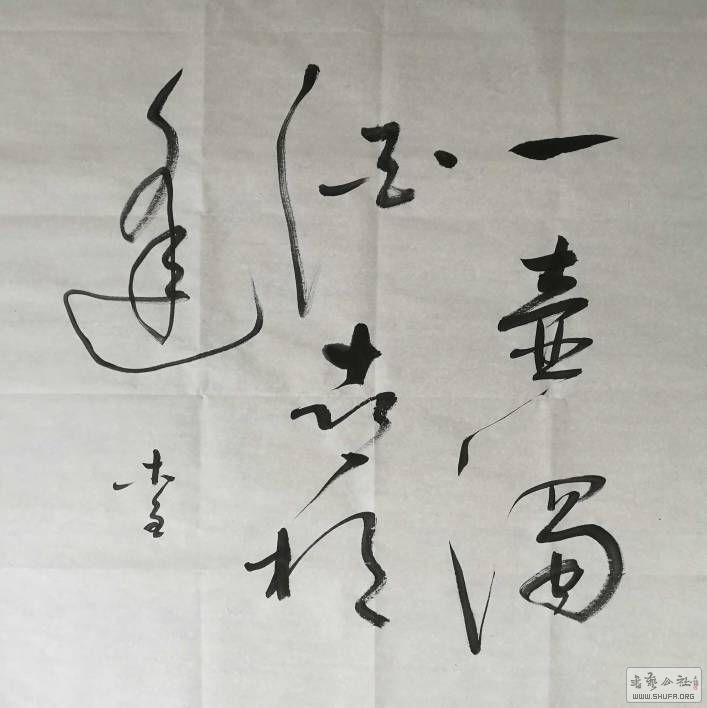 一壶浊
酒喜相
逢
书艺公社
WWW.SHUFA.ORG